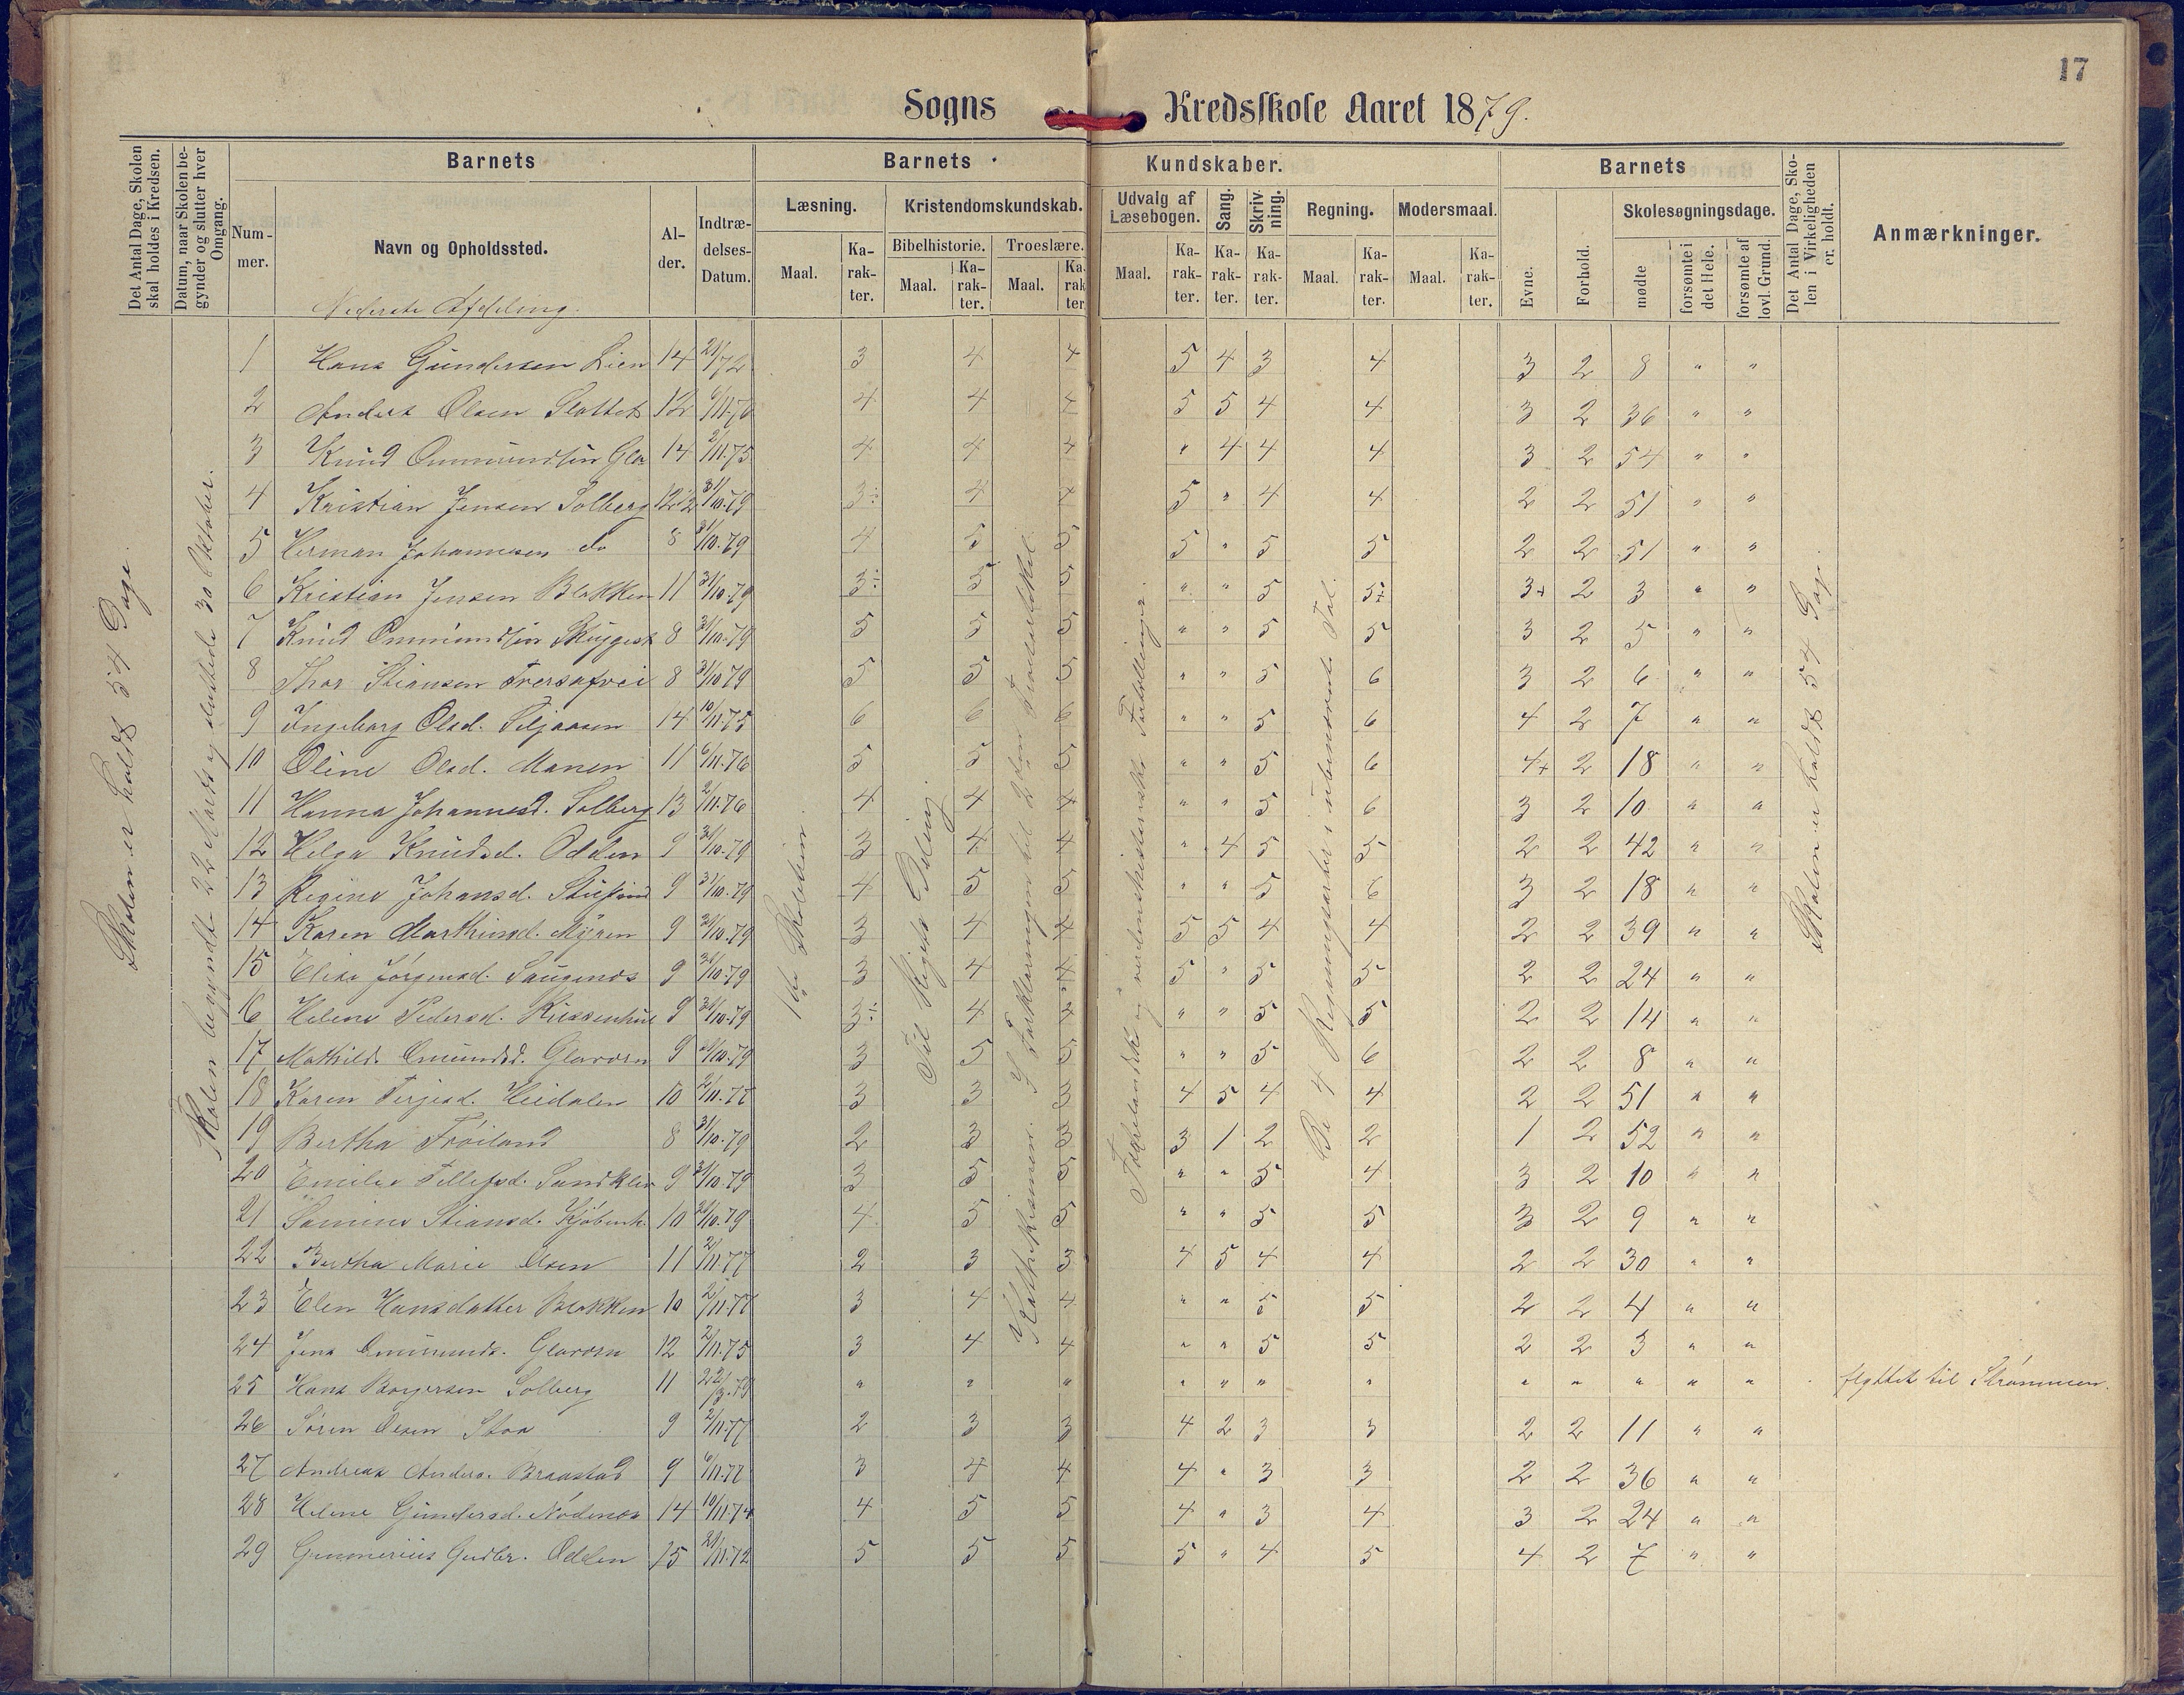 17
Sogns Kredsskole Aaret 1879.
Det Antal Dage, Skolen skal holdes i Kredsen.
Datum, naar Skolen begynder og slutter hver Omgang.
Barnets
Nummer.
Navn og Opholdssted.
Alder.
Indtrædelses-Datum.
Barnets Kundskaber.
Læsning.
Maal. Karakter.
Kristendomskundskab.
Bibelhistorie. Maal. Karakter.
Troeslære. Maal. Karakter
Udvalg af Læsebogen. Maal. Karakter.
Sang. Karakter.
Skrivning. Karakter.
Regning. Maal. Karakter.
Modersmaal. Maal. Karakter.
Barnets
Evne.
Forhold.
Skolesøgningsdage.
mødte
forsømte i det Hele.
forsømte af lovl. Grund.
Det Antal Dage, Skolen i Virkeligheden er holdt.
Anmærkninger.
Nederste Afdeling.
Skolen er holdt 54 Dage.
Skolen begyndt 22 Marts og sluttede 30 Oktober.
Til Rigets Deling
I Forklaringen til 2den Troesartikel
Fædrelandske og verdenshistoriske Fortællinger.
De 4 Regningsarter i ubenævnte Tal.
Skolen er holdt 54 Dage.
1 Hans Gundersen Lien 14 3 4 4 5 4 3 4 3 2 8 " "
2 Anders Olsen Slottet 12 6/11.76 4 4 4 5 5 4 4 3 2 36 " "
3 Knud Ommundsen Gla 14 2/11.75 4 4 4 " 4 4 4 3 2 54 " "
4 Kristian Jensen Solberg 12 1/2 31/10.79 3÷ 4 4 5 " 4 4 2 2 51 " "
5 Herman Johannesen do 8 31/10.79 4 5 5 5 " 5 5 2 2 51 " "
6 Kristian Jensen Blakken 11 31/10.79 3÷ 5 5 " " 5 5÷ 3+ 2 3 " "
7 Knud Ommundsen 8 31/10.79 5 5 5 " " 5 5 3 2 5 " "
8 Thor Stiansen 8 31/10.79 5 5 5 " " 5 6 3 2 6 " "
9 Ingeborg Olsd. Siljaasen 14 10/11.75 6 6 6 " " 5 6 4 2 7 " "
10 Oline Olsd. Manen 11 6/11.76 5 5 5 " " 5 6 4+ 2 18 " "
11 Hanna Johannesd. Solberg 13 2/11.76 4 4 4 " " 5 6 3 2 10 " "
12 Helga Knudsd. Odden 9 31/10.79 3 4 4 " 4 5 5 2 2 42 " "
13 Regine Johansd. 9 31/10.79 4 5 5 " " 5 6 3 2 18 " "
14 Karen Marthinsd. Myren 9 31/10.79 3 4 4 5 5 4 4 2 2 39 " "
15 Elise Jørgensd. Saugenes 9 31/10.79 3 4 4 5 " 5 5 2 2 24 " "
16 Helene Pedersd. 9 31/10.79 3÷ 4 4 " " 5 5 2 2 14 " "
17 Mathilde Omundsd. Glaroen 9 31/10.79 3 5 5 " " 5 6 2 2 8 " "
18 Karen Terjesd. Heidalen 10 2/11.77 3 3 3 4 5 4 4 2 2 51 " "
19 Bertha Frøiland 8 31/10.79 2 3 3 3 1 2 2 1 2 52 " "
20 Emilie Tellefsd. Sandklev 9 31/10.79 3 5 5 " " 5 4 3 2 10 " "
21 Samine Stiansd. Kjøbenh. 10 31/10.79 4 5 5 " " 5 5 3 2 9 " "
22 Bertha Marie Olsen 11 2/11.77 2 3 3 4 5 4 4 2 2 30 " "
23 Elen Hansdatter Blakken 10 2/11.77 3 4 4 " " 5 5 2 2 4 " "
24 Jens Ommunds. Glaroen 12 2/11.75 3 4 4 " " 5 5 2 2 3 " "
25 Hans Borgersen Solberg 11 22/3.79 " " " " " " " " " " " " flyttet til Strømmen.
26 Søren Olsen Stoa 9 2/11.77 2 3 3 4 2 3 3 2 2 11 " "
27 Andreas Anders. Braastad 9 6/11.77 3 4 4 4 " 3 3 2 2 36 " "
28 Helene Gundersd. Nødenes 14 10/11.74 4 5 5 4 " 3 4 3 2 24 " "
29 Gunnerius Gudbr. Odden 15 5 5 5 5 " 4 5 4 2 7 " "